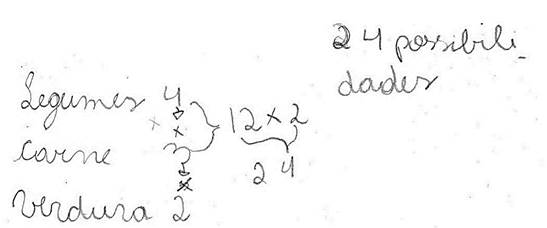 24 possibili-
dades
Legumes 4
x
x
} 12 x 2
carne 3
24
x
Verdura 2